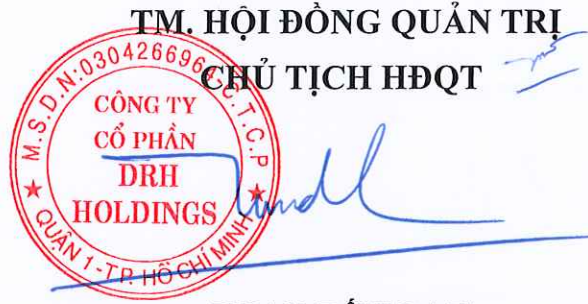 TM. HỘI ĐỒNG QUẢN TRỊ
CHỦ TỊCH HĐQT
M.S.D.N:0304266964-C.T.C.P
CÔNG TY
CỔ PHẦN
DRH
HOLDINGS
QUẬN 1-T.P. HỒ CHÍ MINH